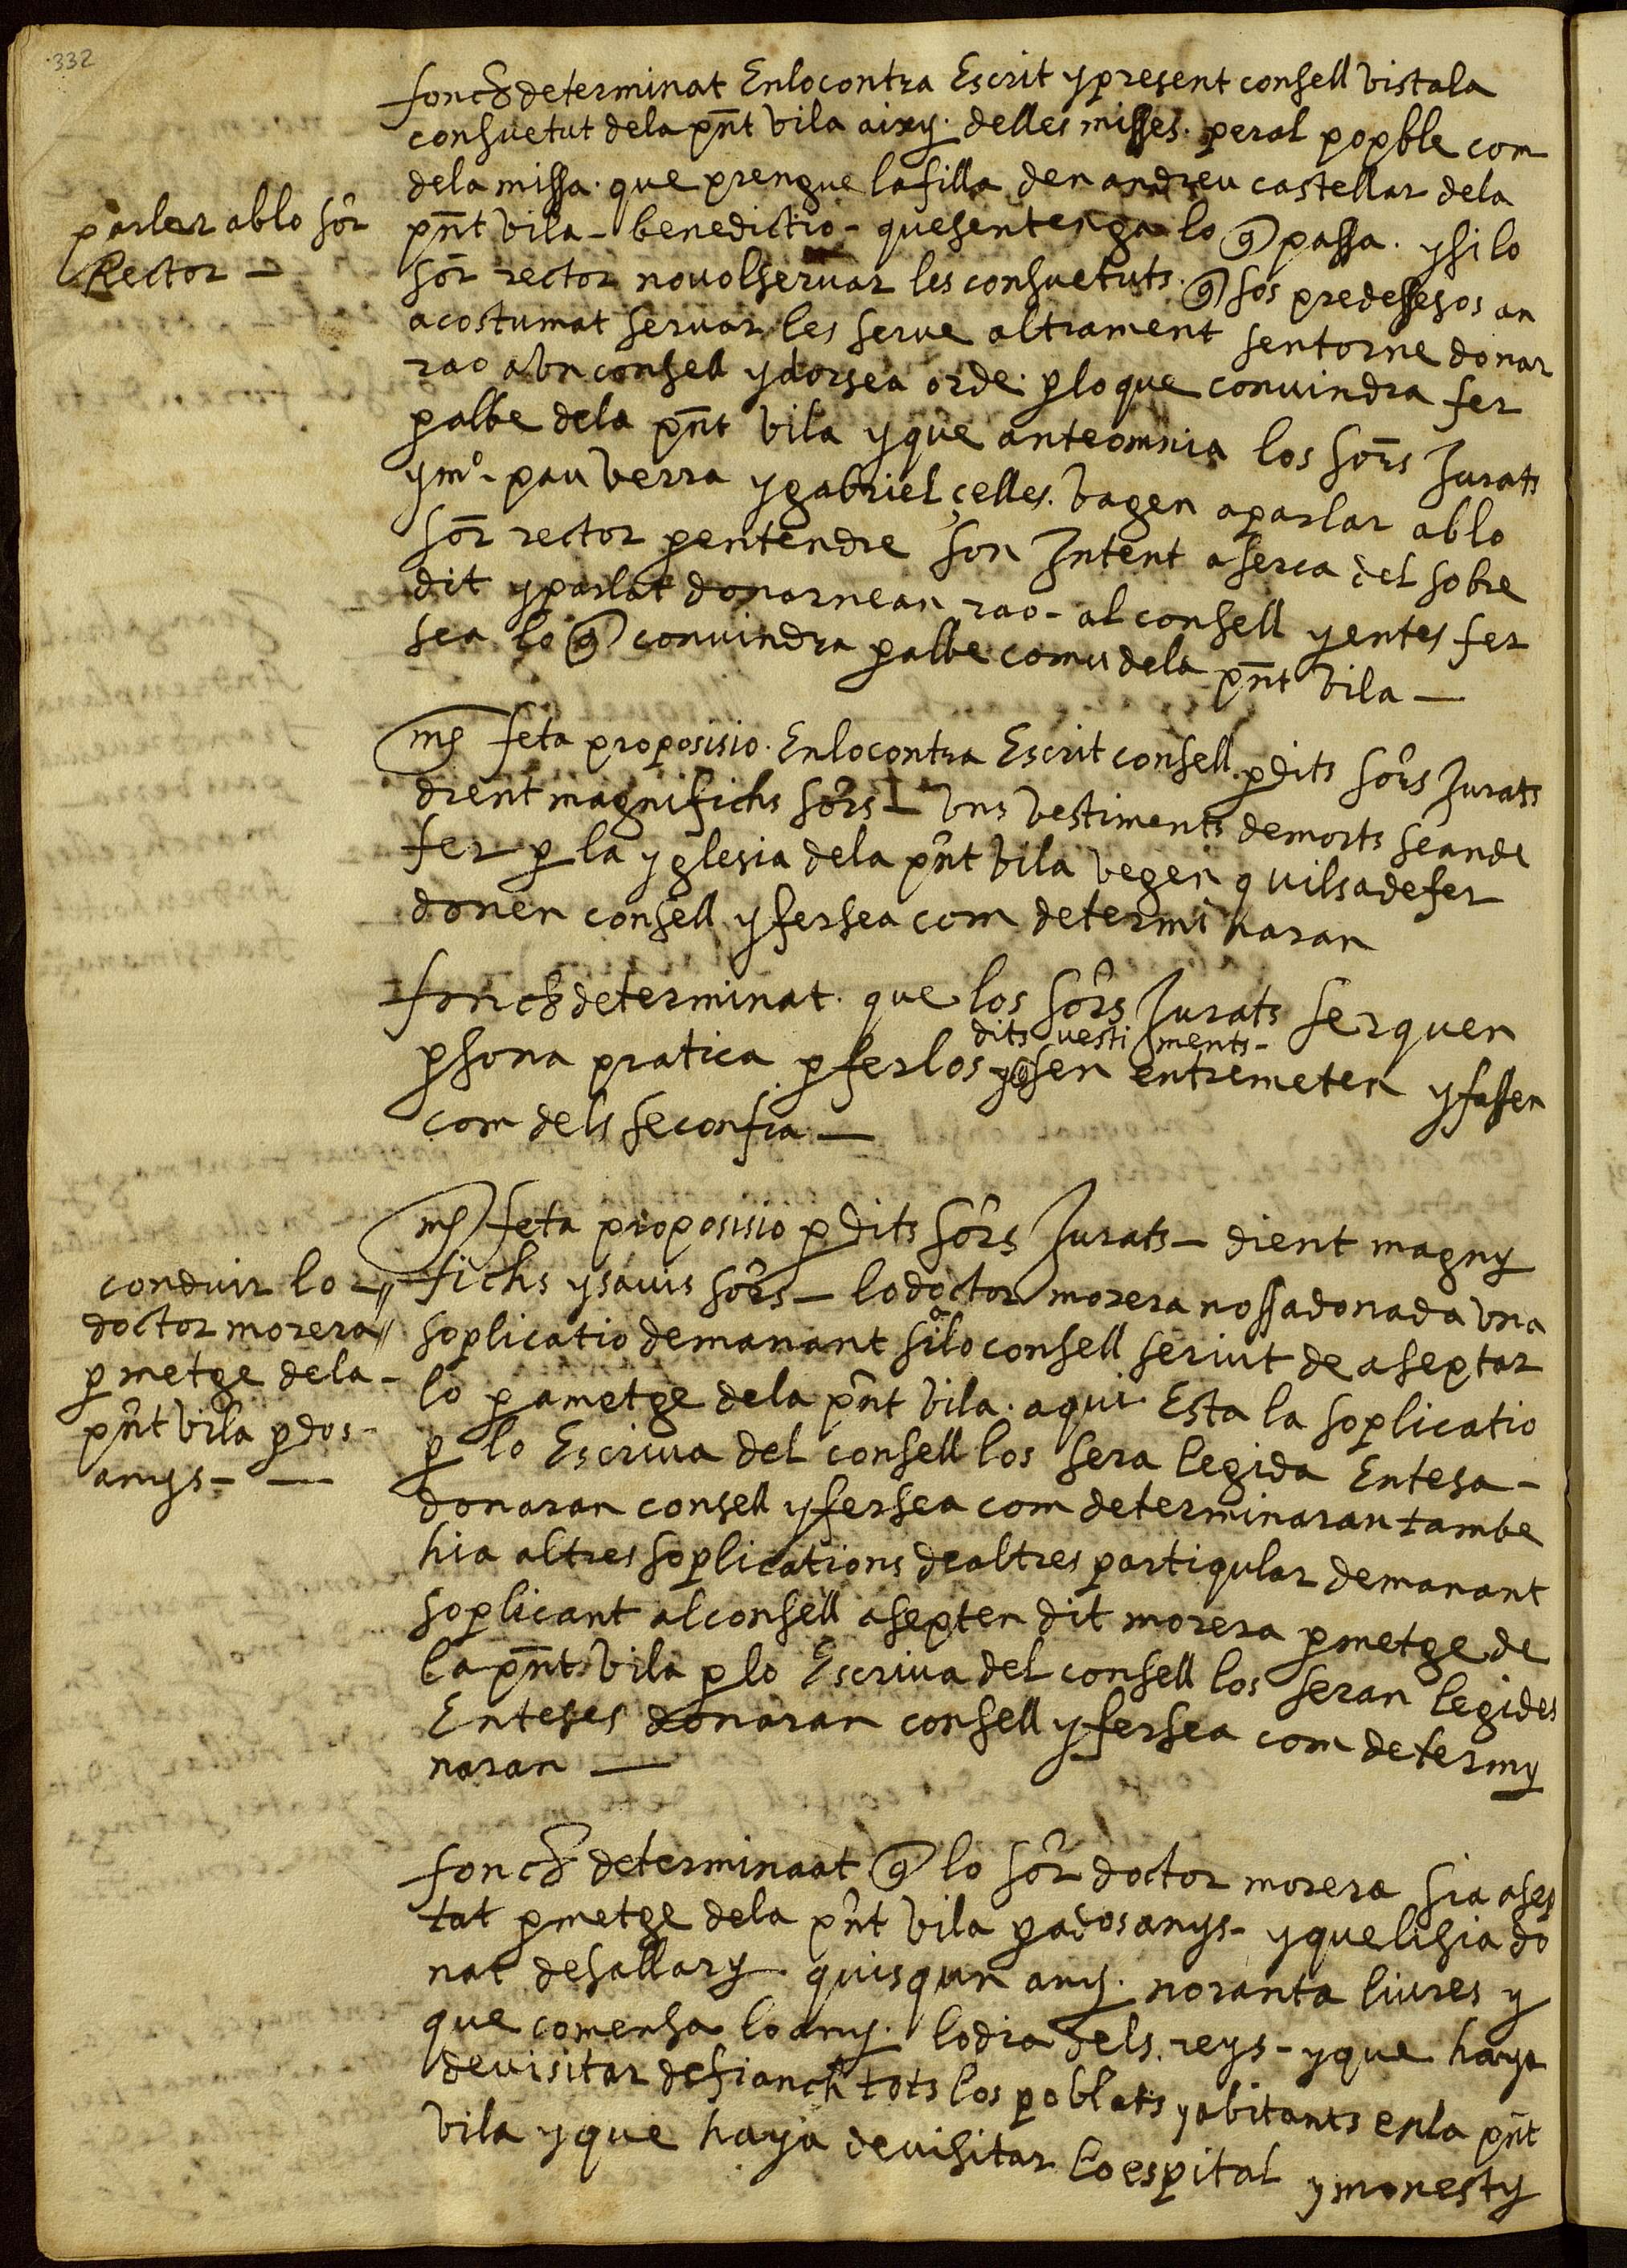 332
fonch determinat Enlocontra Escrit y present consell vistala
consuetut dela pnt vila aixy. delles misses. peral popble com
dela missa. que prengue lafilla den andreu castellar dela
parlar ablo sor
Rector —
pnt vila - benedictio - quesentenga lo q passa. ysilo
sor rector novolservar les consuetuts. q sos predessesos an
acostumat servar les serve altrament sentorne donar
rao abn consell ydorsea orde. ploque convindra fer
palbe dela pnt vila yque anteomnia los sors Jurats
ymº. pau verra ygabriel çelles. vagen aparlar ablo
sor rector pentendre son Intent aserca del sobre
dit yparlat donarnean rao - al consell yentes fer
sea lo q convindra palbe comu dela pnt vila —
mes feta proposisio. Enlocontra Escrit consell. pdits sors Jurats
dient magnifichs sors - vns vestiments demorts seande
fer p la yglesia dela pnt vila vegen quilsadefer
donen consell yfersea com determinaran
fonch determinat. que los sors Jurats serquen
dits vestiments -
psona pratica pferlos yq sen entremeten yfassen
com dels seconfia —
mes feta proposisio pdits sors Jurats - dient magny
fichs ysavis sors - lodoctor morera nossadonada vna
soplicatio demanant silo consell seriut de aseptar
lo pametge dela pnt vila. aqui Esta la soplicatio
p lo Escriva del consell los sera legida Entesa -
donaran consell yfersea com determinaran tambe
hia altres soplications dealtres partiqular demanant
soplicant alconsell asepten dit morera pmetge de
la pnt vila plo Escriva del consell los seran legides
Enteses donaran consell yfersea com determy
naran —
conduir lo
doctor morera
p metge dela -
pnt vila pdos -
anys - —
fonch determinaat q lo sor doctor morera sia asep
tat pmetge dela pnt vila padosanys - yquelisia do
nat desallary. quisqun any. noranta liures y
que comensa loany. lodia dels. reys - yque haya
devisitar defranch tots los poblats yabitants enla pnt
vila yque haya devisitar loespital ymonesty